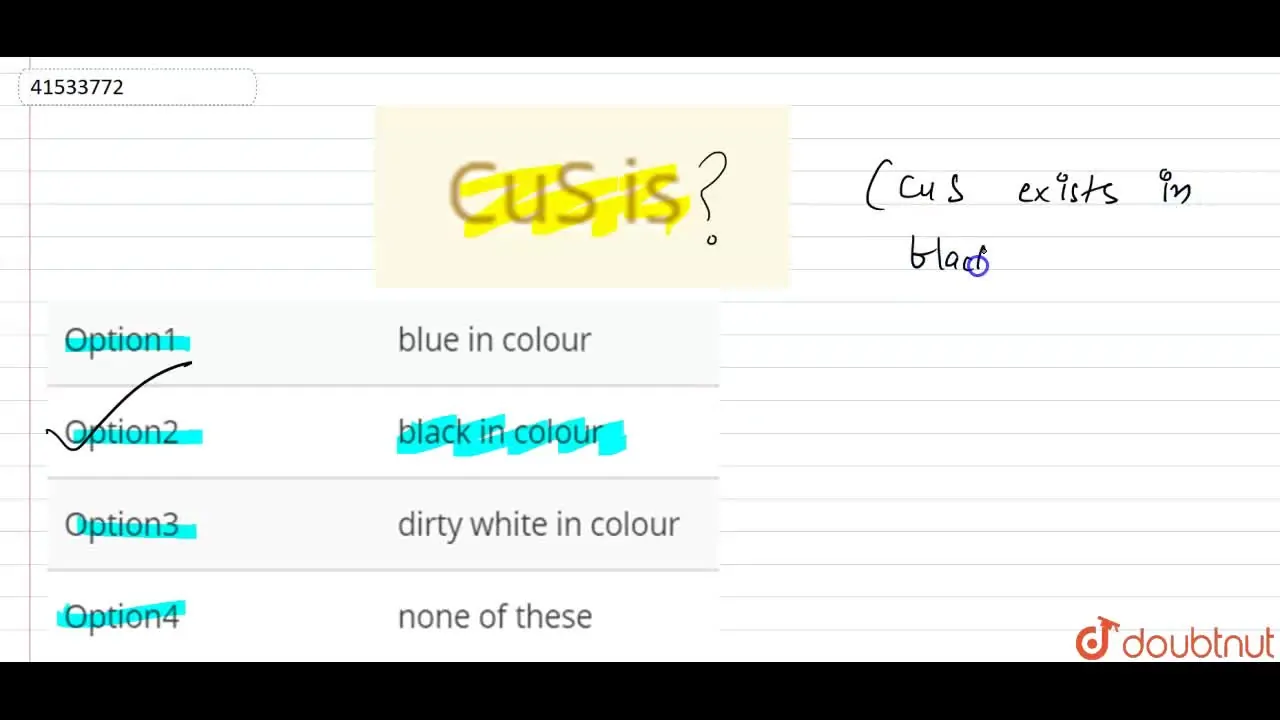 41533772
CuS is ?
(CuS exists in
black
Option1 blue in colour
Option2 black in colour
Option3 dirty white in colour
Option4 none of these
doubtnut